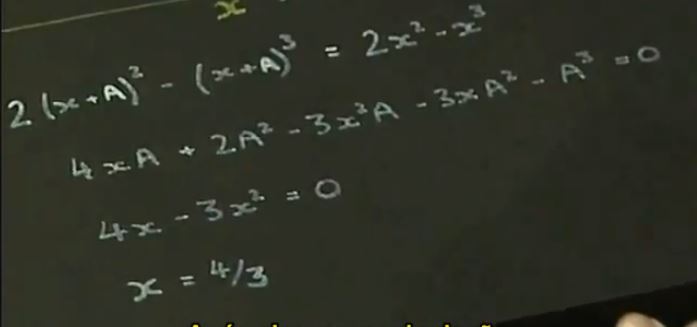 x
2(x+A)² - (x+A)³ = 2x² - x³
4xA + 2A² - 3x²A - 3xA² - A³ = 0
4x - 3x² = 0
x = 4/3